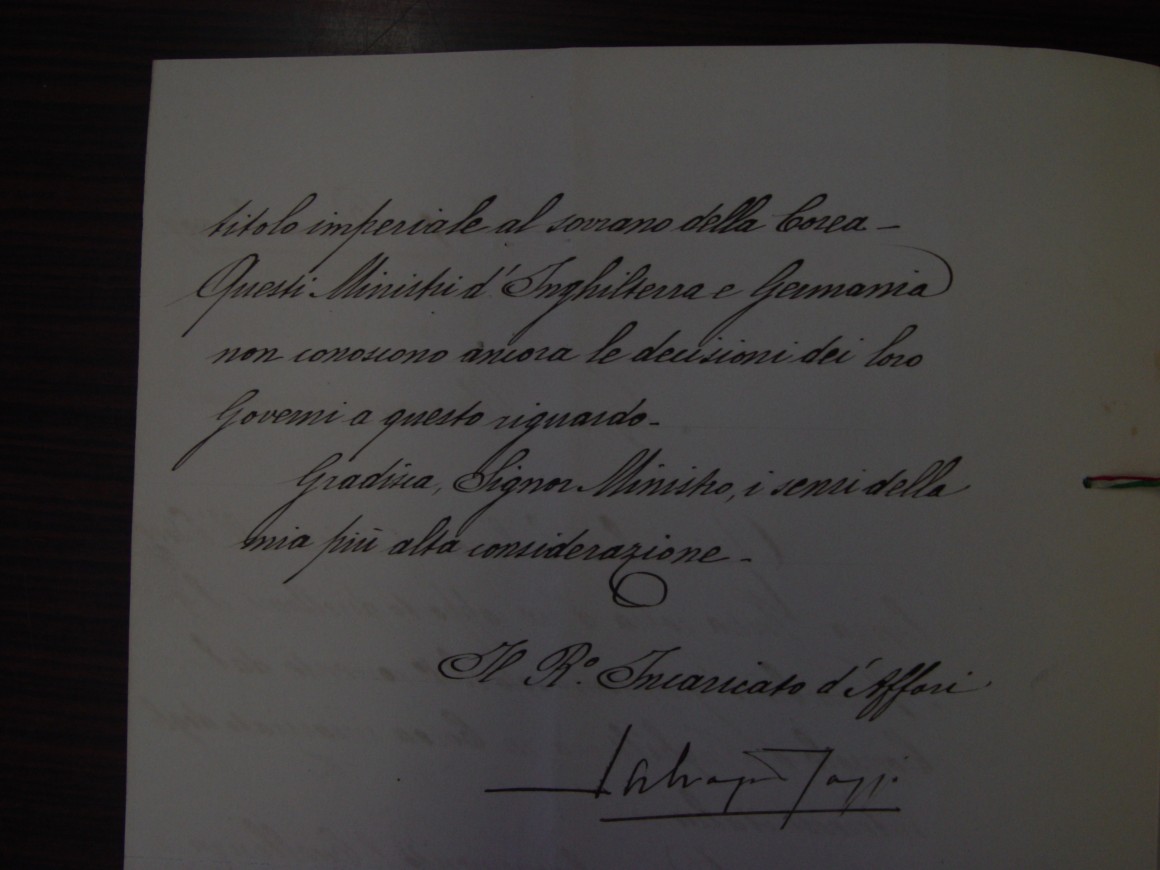 titolo imperiale al sovrano della Corea -
Questi Ministri d'Inghilterra e Germania
non conoscono ancora le decisioni dei loro
Governi a questo riguardo -
Gradisca, Signor Ministro, i sensi della
mia più alta considerazione -
Il R.º Incaricato d'Affari
Salvago Raggi